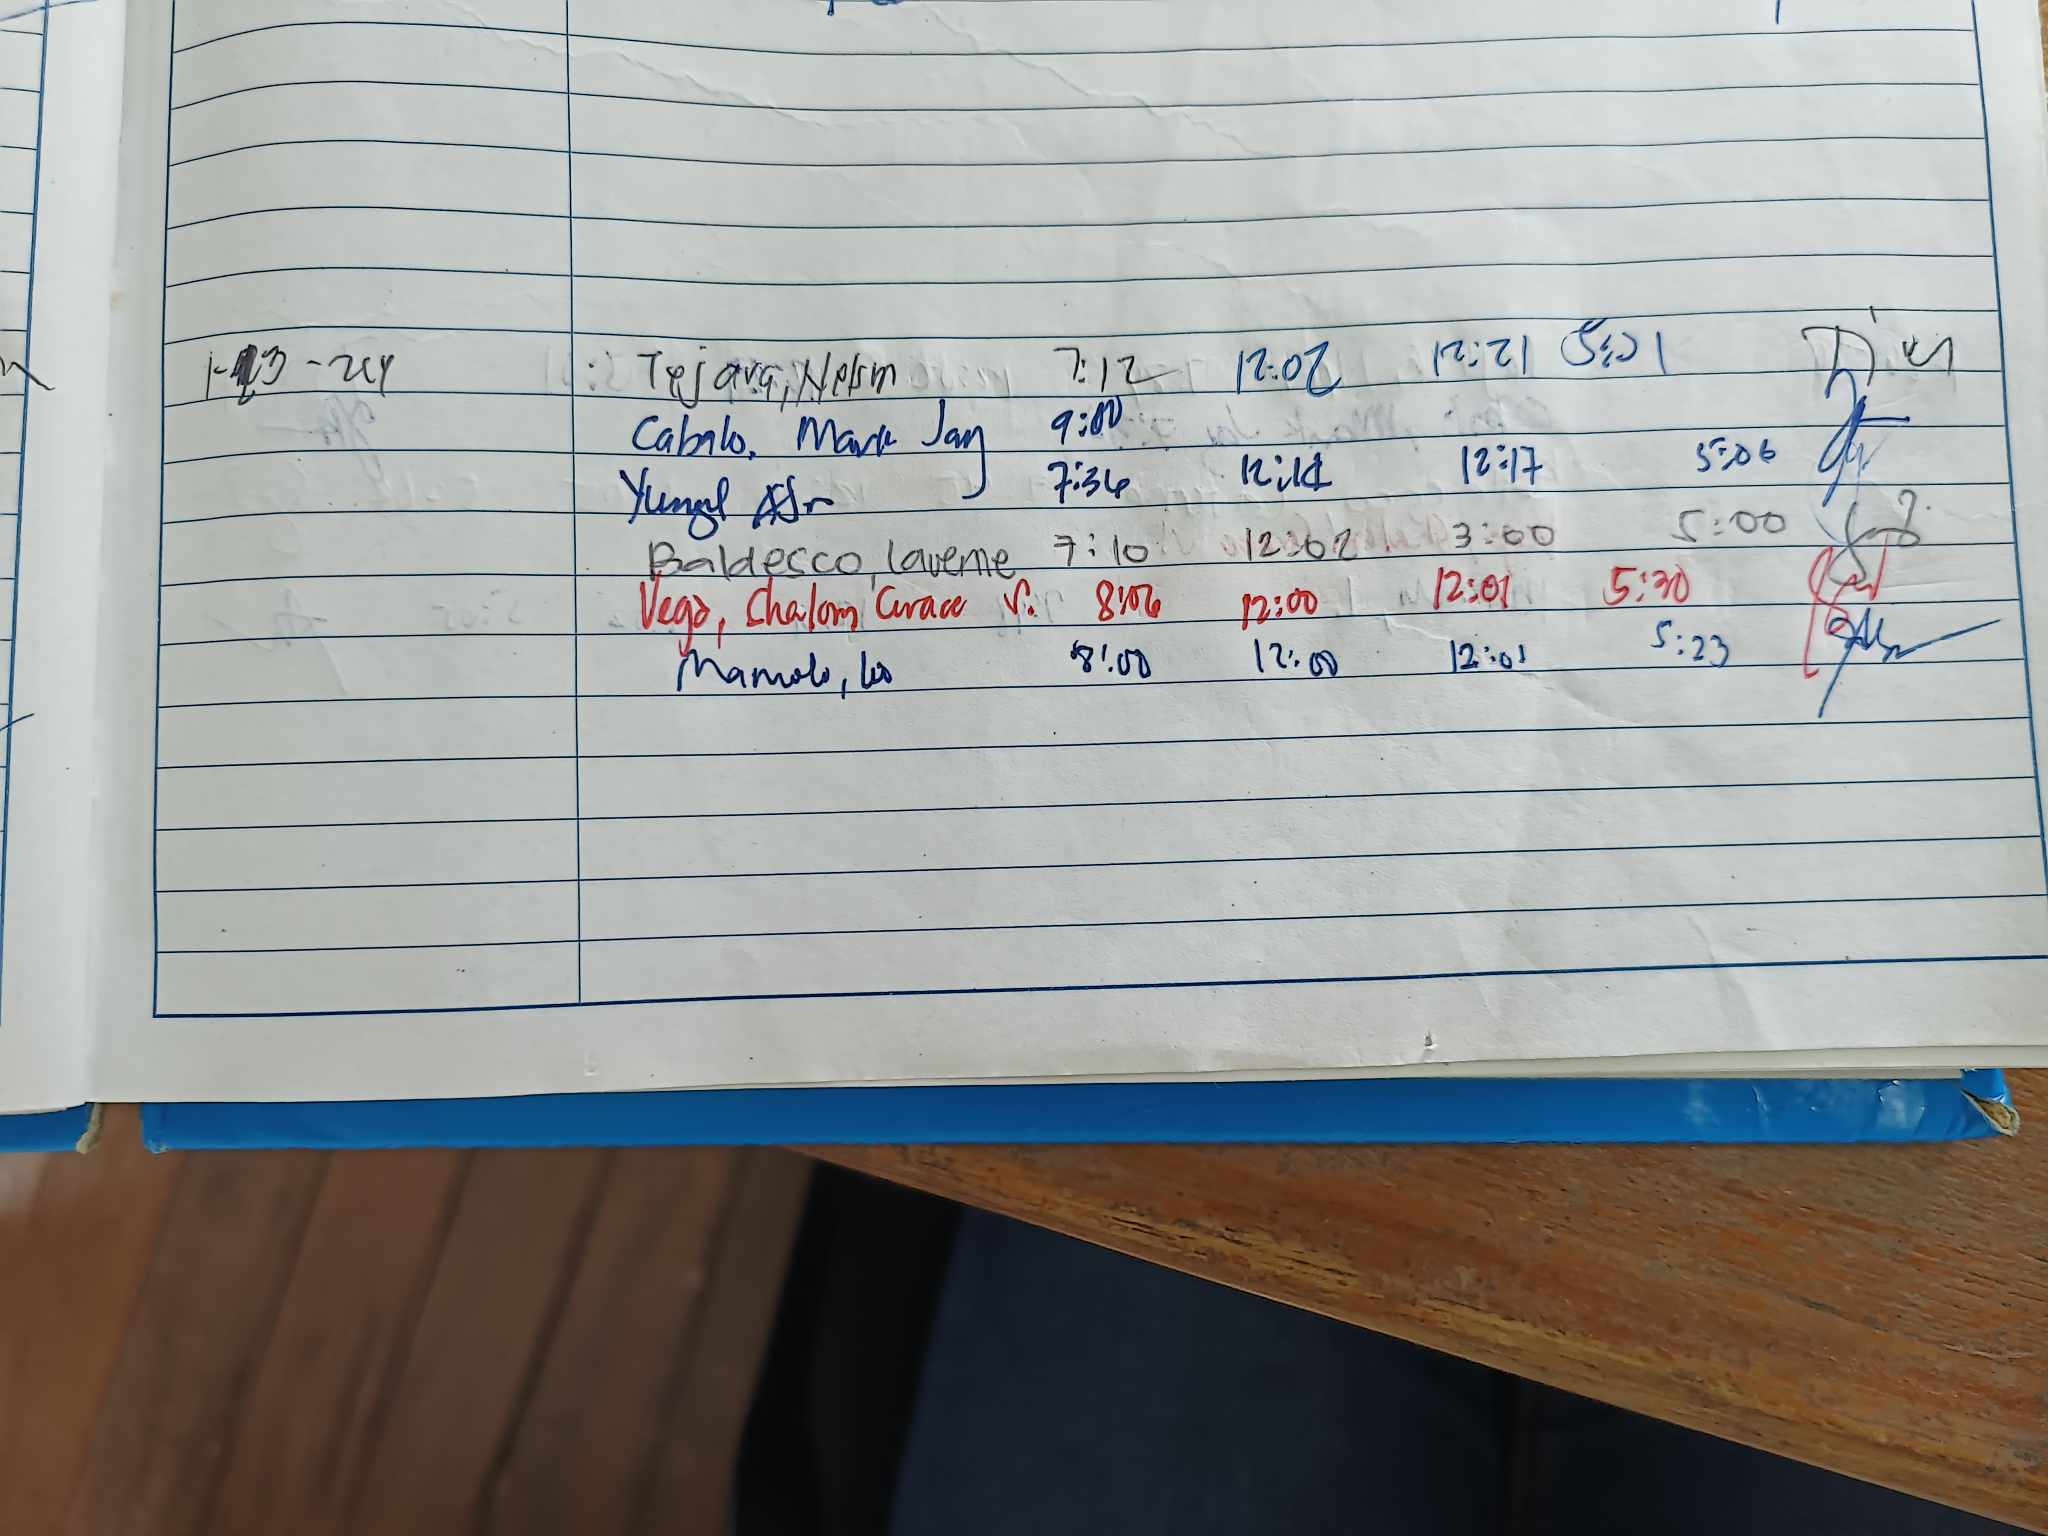 1-23-24 Tejara, Nelsm 7:12 12:02 12:21 5:21
Cabalo, Mark Jay 9:00
7:36 12:12 12:17 5:06
Baldesco, laverne 7:10 12:02 3:00 5:00
Vega, Shalom Grace V. 8:06 12:00 12:01 5:30
Mamolo, leo 8:00 12:00 12:01 5:23